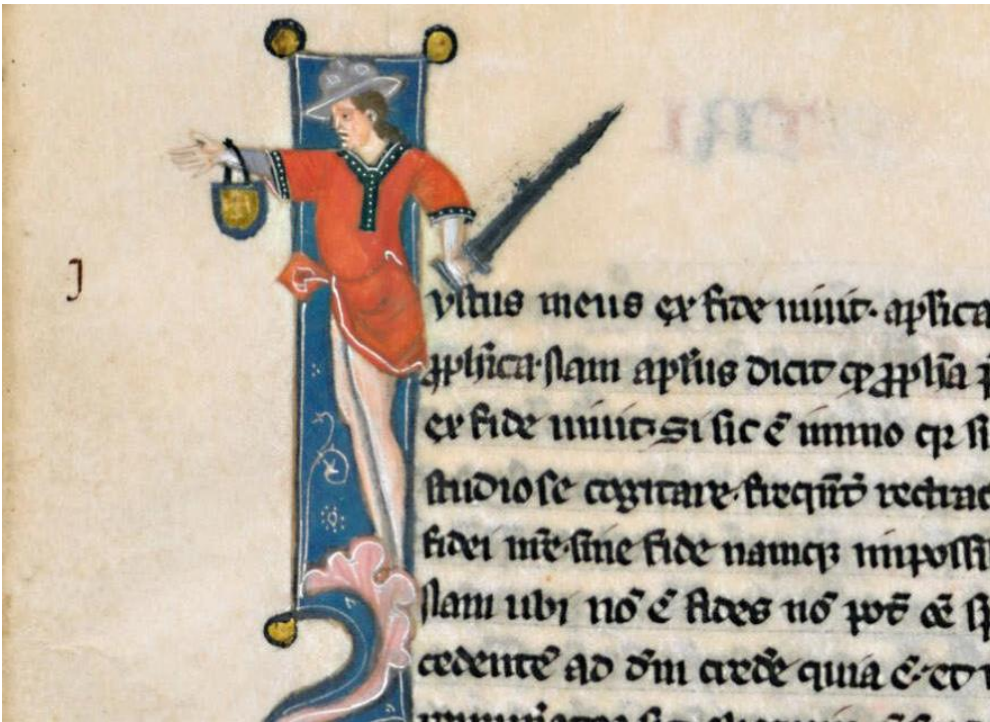 J
ystus meus ex fide uiuit. apl'ica
ꝓph'ica. Nam apl'us dicit qđ ꝓph'a
ex fide uiuit. Si sic ē immo qꝛ si
studiose cogitare. freq̄nt' retrac
fidei nr̄e. sine fide namqꝫ impossi
Nam ubi nō ē fides nō pot̄ ēē sp
cedentē ad dm̄ credẽ quia ē. et